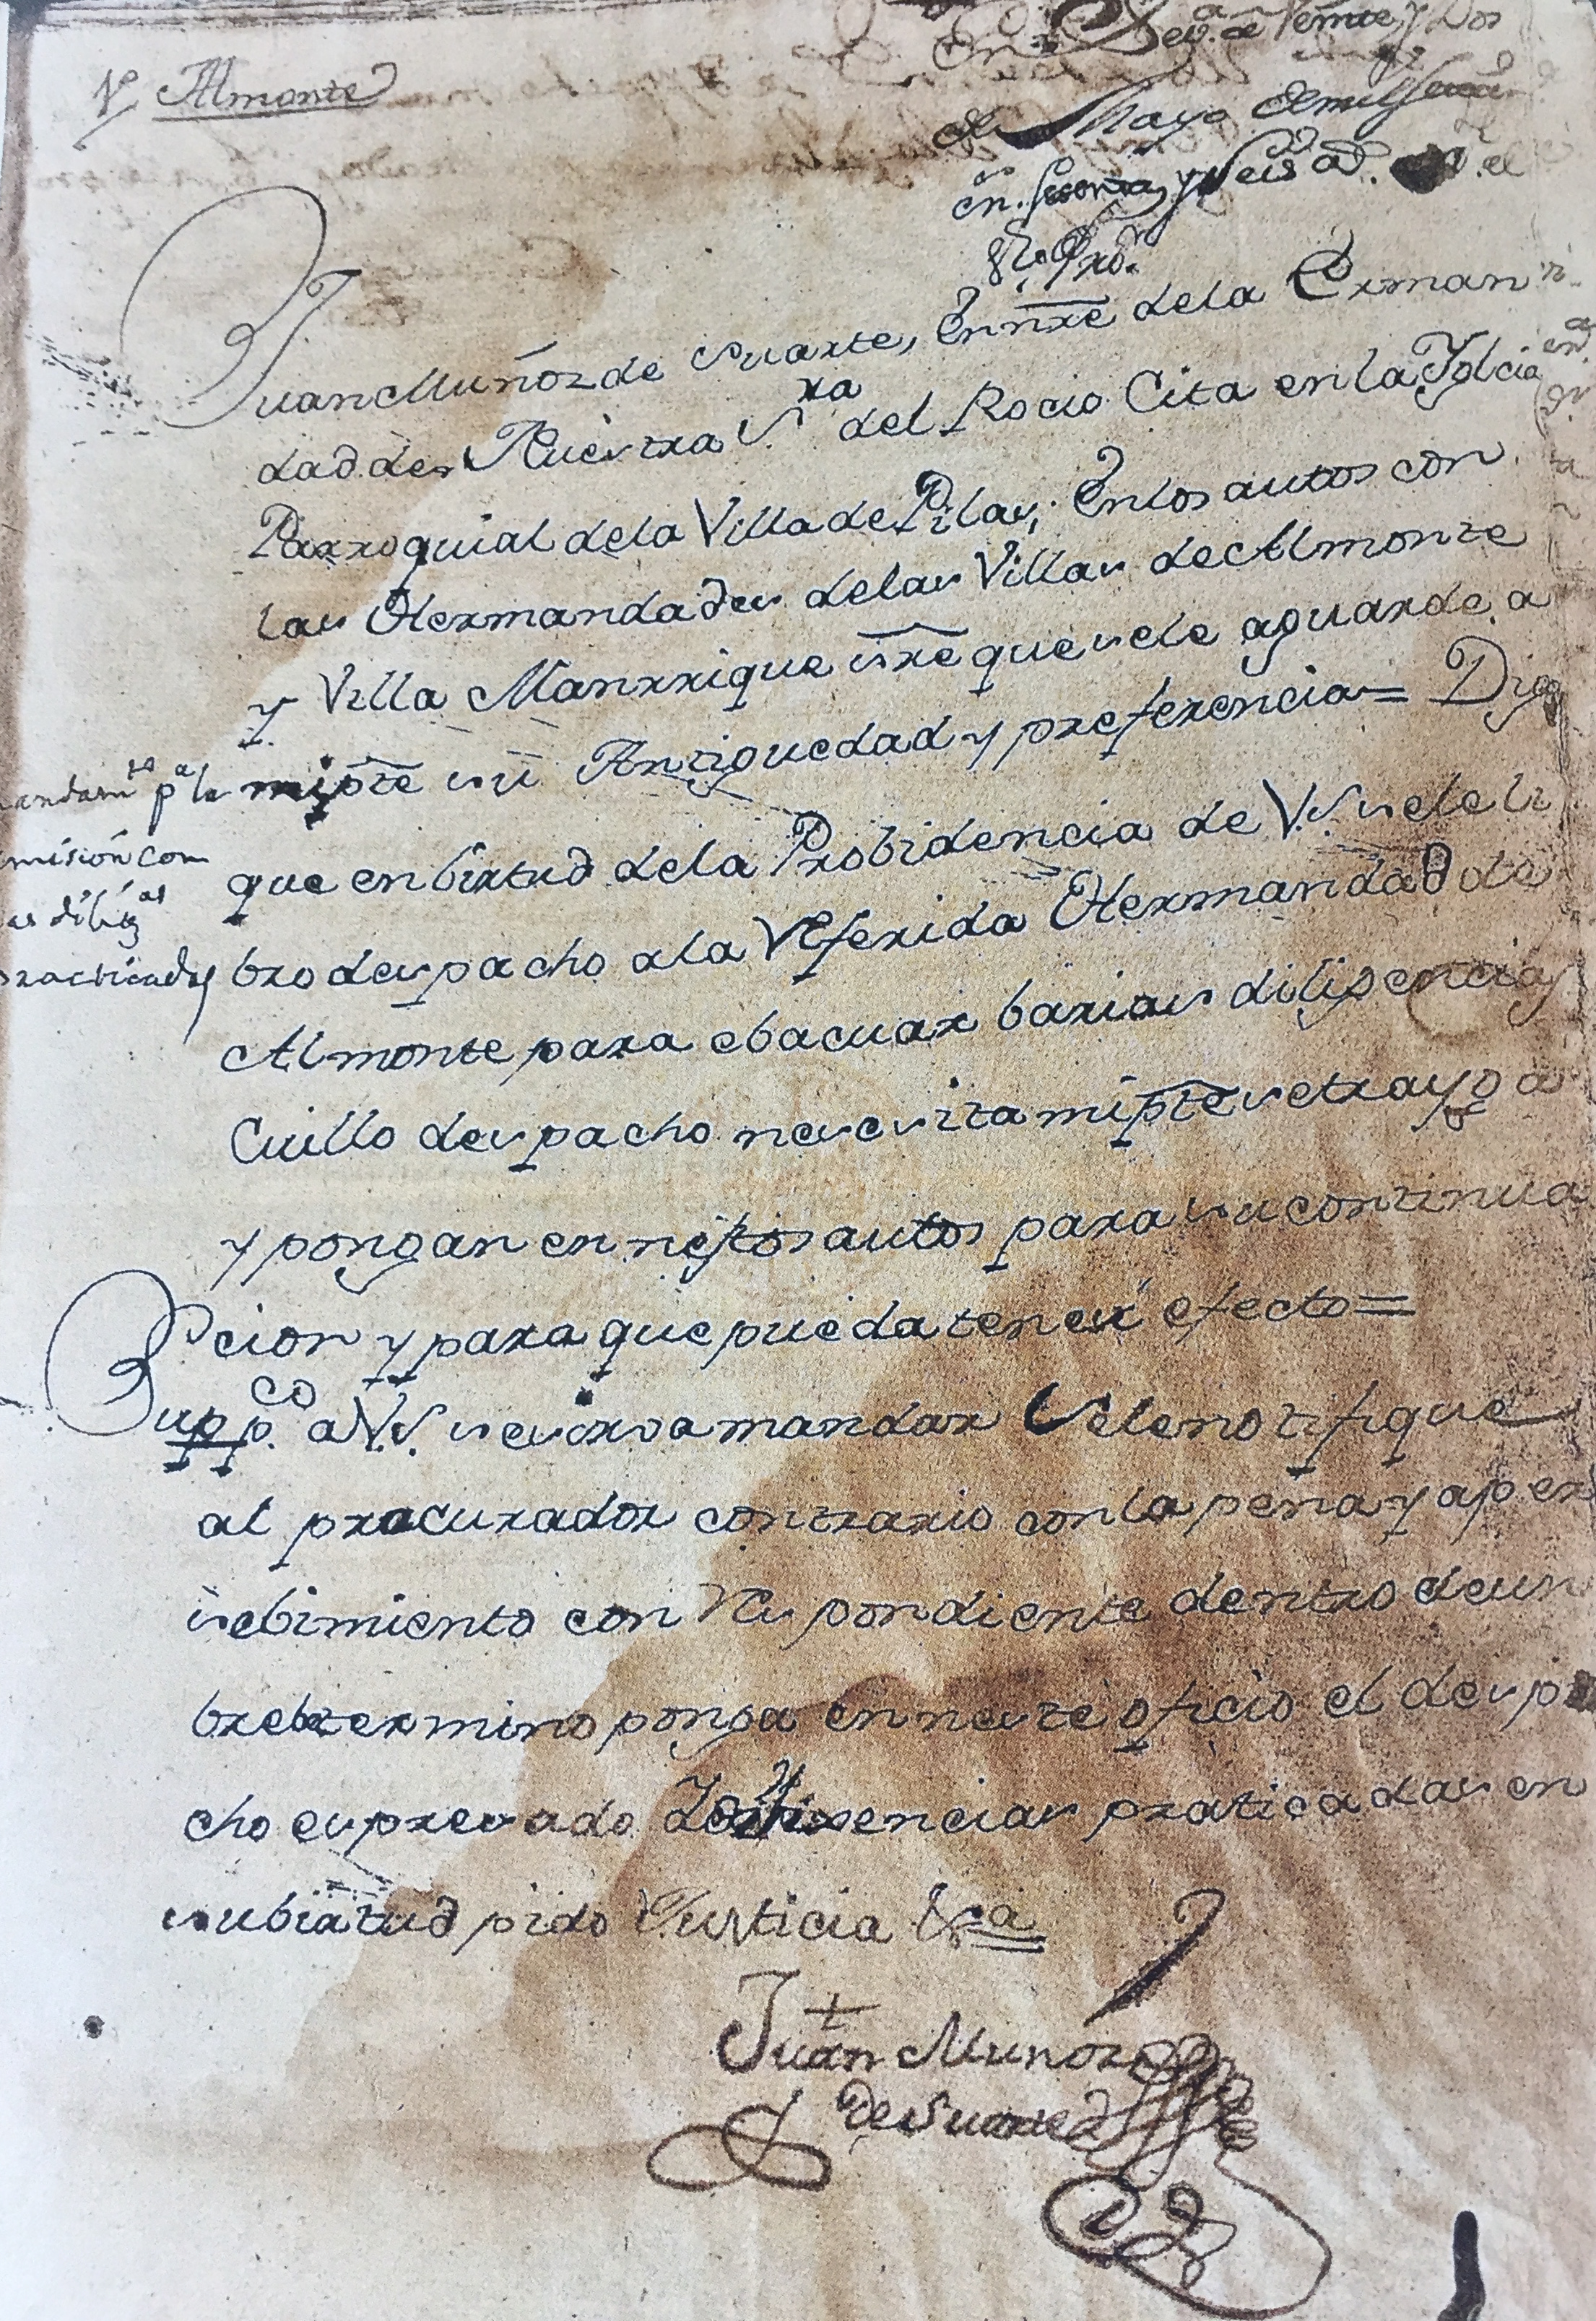 Vª Almonte
En Sevª a Veinte y Dos
de Mayo de mil sete
cin. sesenta y seis a
Juan Muñoz de Suarte, En nrẽ dela Erman
dad de Nuestra Sra del Rocio Cita en la Yglcia
Parroquial dela Villa de Pilas; En los autos con
las Hermandades delas Villas de Almonte
y Villa Manrrique sre que sele aguarde a
mi pte su Antiguedad y preferencia = Digo
que en birtud dela Probidencia de V.S. sele li
bro despacho ala Referida Hermandad de
Almonte para ebacuar barias diligencias
Cuillo despacho necesita mi pte se trayga
y pongan en nestos autos para su continua
cion y para que pueda tener efecto =
Suppco a V.S. se sirva mandar Sele notifique
al procurador contrario con la pena y aper
sebimiento con Respondiente dentro de un
brebe termino ponga en neste oficio el despa
cho espresado diligencias praticadas en
su birtud pido Justicia &ª
Juan Muñoz
de Suarte
mandamto pª la
misión con
as diligas
practicadas